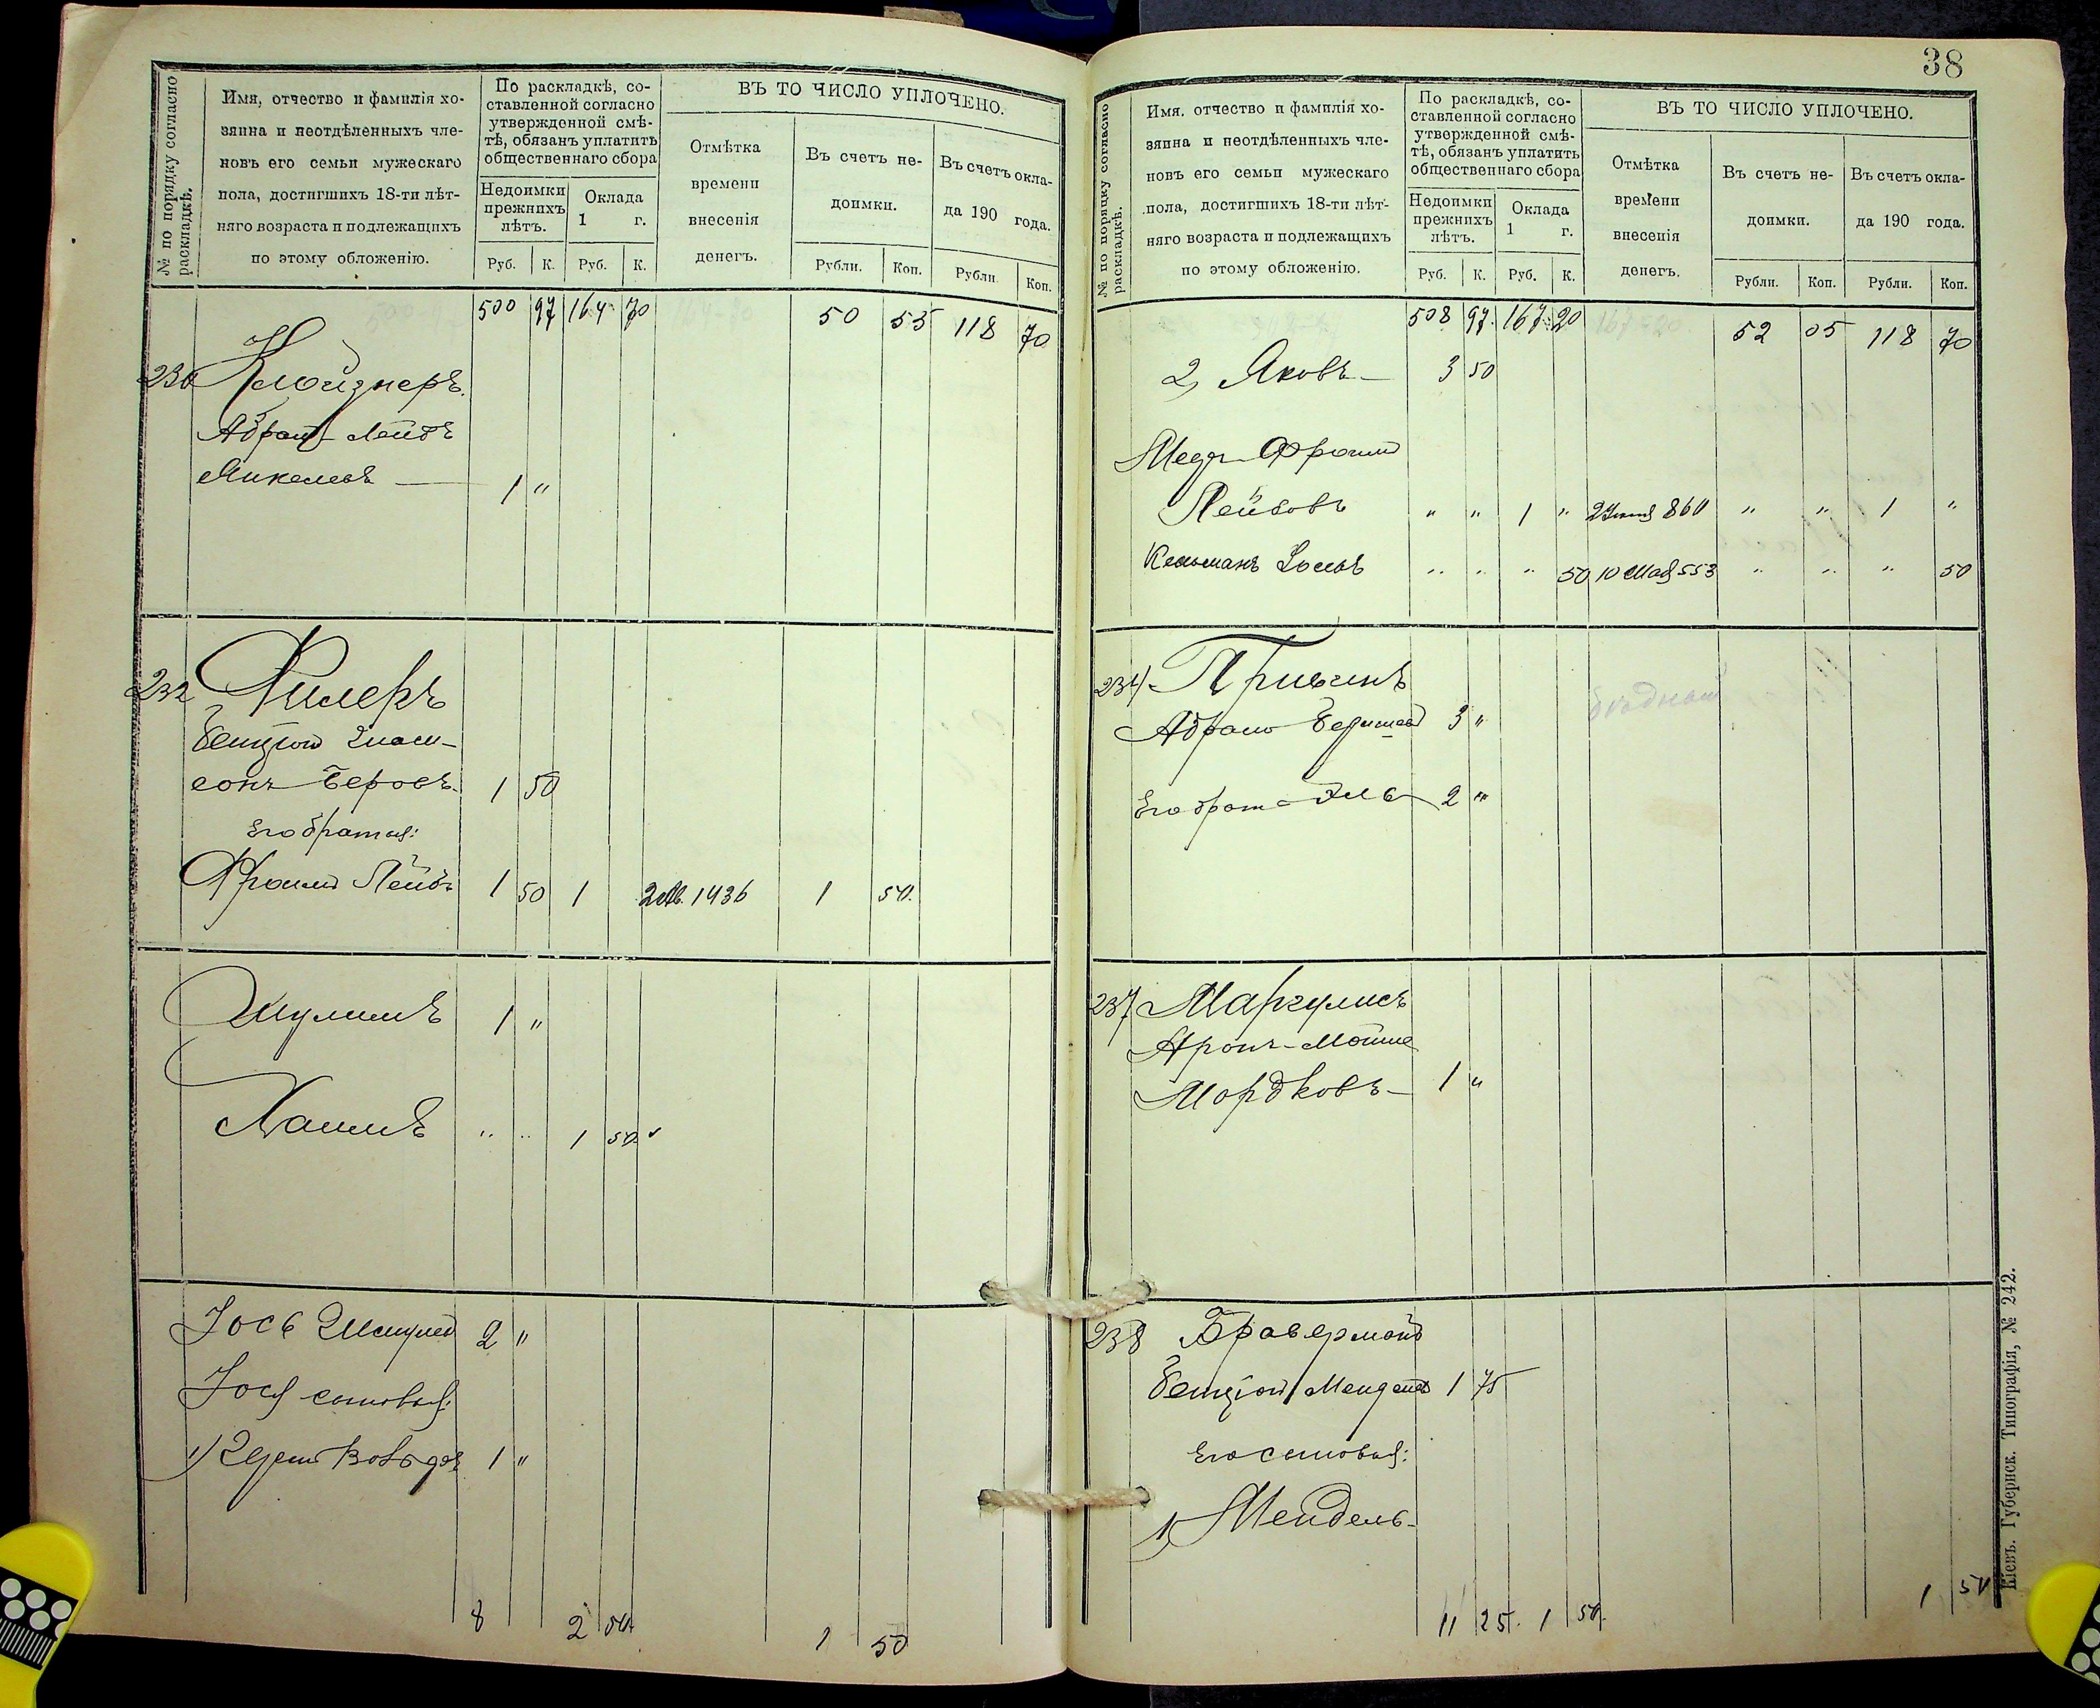 № по порядку согласно раскладкѣ.
Имя, отчество и фамилія хо-
зяина и неотдѣленныхъ чле-
новъ его семьи мужескаго
пола, достигшихъ 18-ти лѣт-
няго возраста и подлежащихъ
по этому обложенію.
По раскладкѣ, со-
ставленной согласно
утвержденной смѣ-
тѣ, обязанъ уплатить
общественнаго сбора
Недоимки
прежнихъ
лѣтъ.
Оклада
1 г.
Руб. К. Руб. К.
ВЪ ТО ЧИСЛО УПЛОЧЕНО.
Отмѣтка
времени
внесенія
денегъ.
Въ счетъ не-
доимки.
Рубли. Коп.
Въ счетъ окла-
да 190 года.
Рубли Коп.
500 97 164 70 50 55 118 70
Клойзнеръ
Абрам-Лейбъ
1 "
232 Филеръ
Бенціон
сонъ Беровъ 1 50
Его братья:
Фроим Лейбъ 1 50 1 1436 1 50.
Шулимъ 1 "
Хаимъ " " 1 50
Іось Шмулев 2 "
Іося сыновья:
1) 1 "
8 2 50 1 50
38
№ по порядку согласно раскладкѣ.
Имя, отчество и фамилія хо-
зяина и неотдѣленныхъ чле-
новъ его семьи мужескаго
пола, достигшихъ 18-ти лѣт-
няго возраста и подлежащихъ
по этому обложенію.
По раскладкѣ, со-
ставленной согласно
утвержденной смѣ-
тѣ, обязанъ уплатить
общественнаго сбора
Недоимки
прежнихъ
лѣтъ.
Оклада
1 г.
Руб. К. Руб. К.
ВЪ ТО ЧИСЛО УПЛОЧЕНО.
Отмѣтка
времени
внесенія
денегъ.
Въ счетъ не-
доимки.
Рубли. Коп.
Въ счетъ окла-
да 190 года.
Рубли. Коп.
508 97 167 20 52 05 118 70
2, Яковъ 3 50
Фроим
Лейбовъ " " 1 " 860 " " 1 "
Кельманъ " " " 50 10 Мая 553 " " " 50
234
Абрам 3 " бѣдный
Его брат 2 "
237 Маргулисъ
Аронъ-Мойше
Мордковъ 1 "
238 Браверман
Бенціон 1 75
Его сыновья:
1) Мендель
11 25 1 50 1 50
Кіевъ. Губернск. Типографія, № 242.